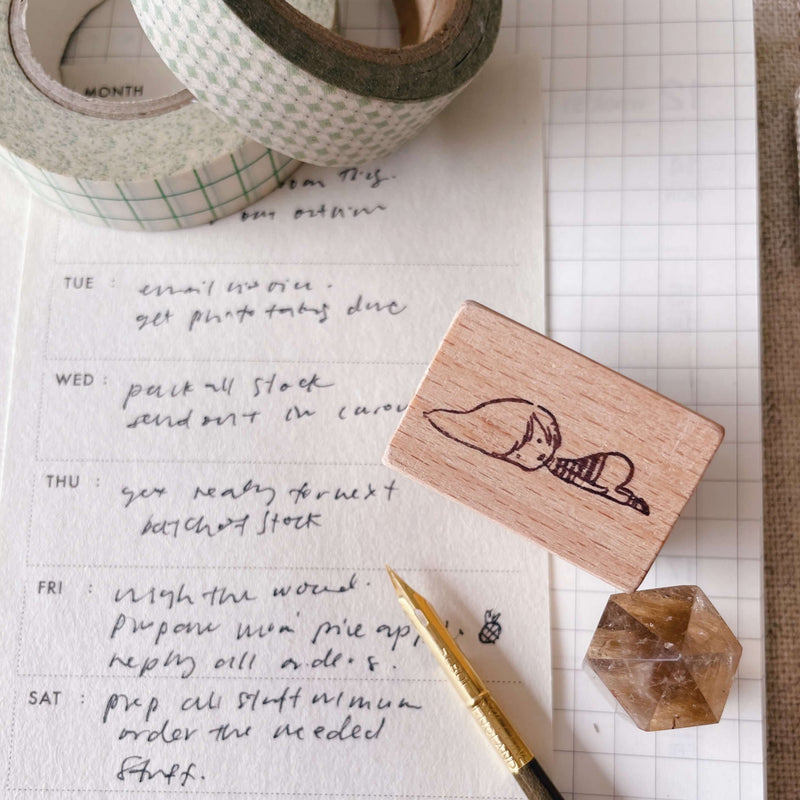 MONTH
TUE :
email invoice.
get photo taking done
WED :
pack all stock
send out in
THU :
get ready for next
batch of stock
FRI :
weigh the
prepare mum pine
reply all orders.
SAT :
prep all stuff
order the needed
stuff.
ENGLAND